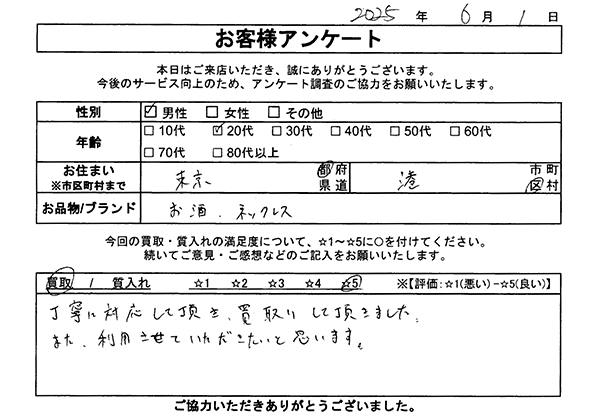 2025 年 6 月 1 日
お客様アンケート
本日はご来店いただき、誠にありがとうございます。
今後のサービス向上のため、アンケート調査のご協力をお願いいたします。
性別 ☑ 男性 □ 女性 □ その他
年齢 □ 10代 ☑ 20代 □ 30代 □ 40代 □ 50代 □ 60代
□ 70代 □ 80代以上
お住まい
※市区町村まで
東京 都 府
県 道
港 市 町
区 村
お品物/ブランド お酒、ネックレス
今回の買取・質入れの満足度について、☆1～☆5に○を付けてください。
続いてご意見・ご感想などのご記入をお願いいたします。
買取 / 質入れ ☆1 ☆2 ☆3 ☆4 ☆5 ※【評価:☆1(悪い)−☆5(良い)】
丁寧に対応して頂き、買取りして頂きました。
また、利用させていただきたいと思います。
ご協力いただきありがとうございました。